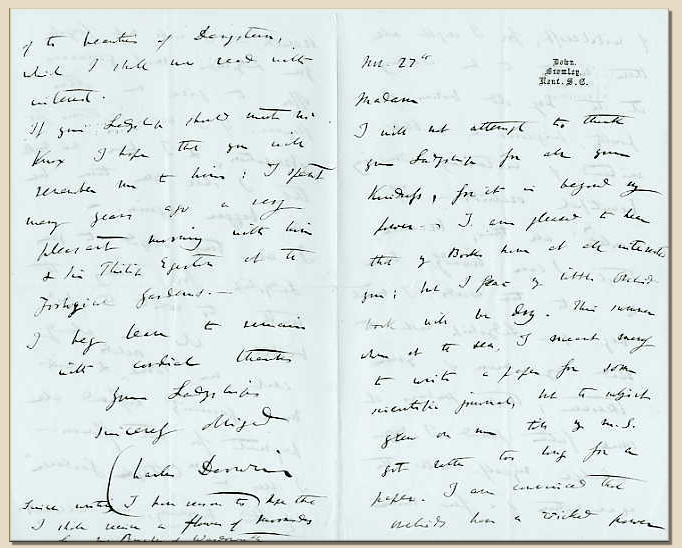 Down.
Bromley.
Kent. S.E.
Nov. 27th
Madam
I will not attempt to thank
your Ladyship for all your
kindness, for it is beyond my
power. I am pleased to hear
that my Books have at all interested
you; but I fear my little Orchid
book will be dry. This summer
when at the sea, I meant merely
to write a paper for some
scientific journal, but the subject
grew on me till my M.S.
got rather too long for a
paper. I am convinced that
orchids have a wicked power
of the beauties of
which I shall now read with
interest.
If your Ladyship should meet Mr.
Knox I hope that you will
remember me to him; I spent
many years ago a very
pleasant morning with him
& Sir Philip Egerton at the
Zoological Gardens.—
I beg leave to remain
with cordial thanks
Your Ladyships
sincerely obliged
Charles Darwin
Since writing I have reason to hope that
I shall receive a flower of